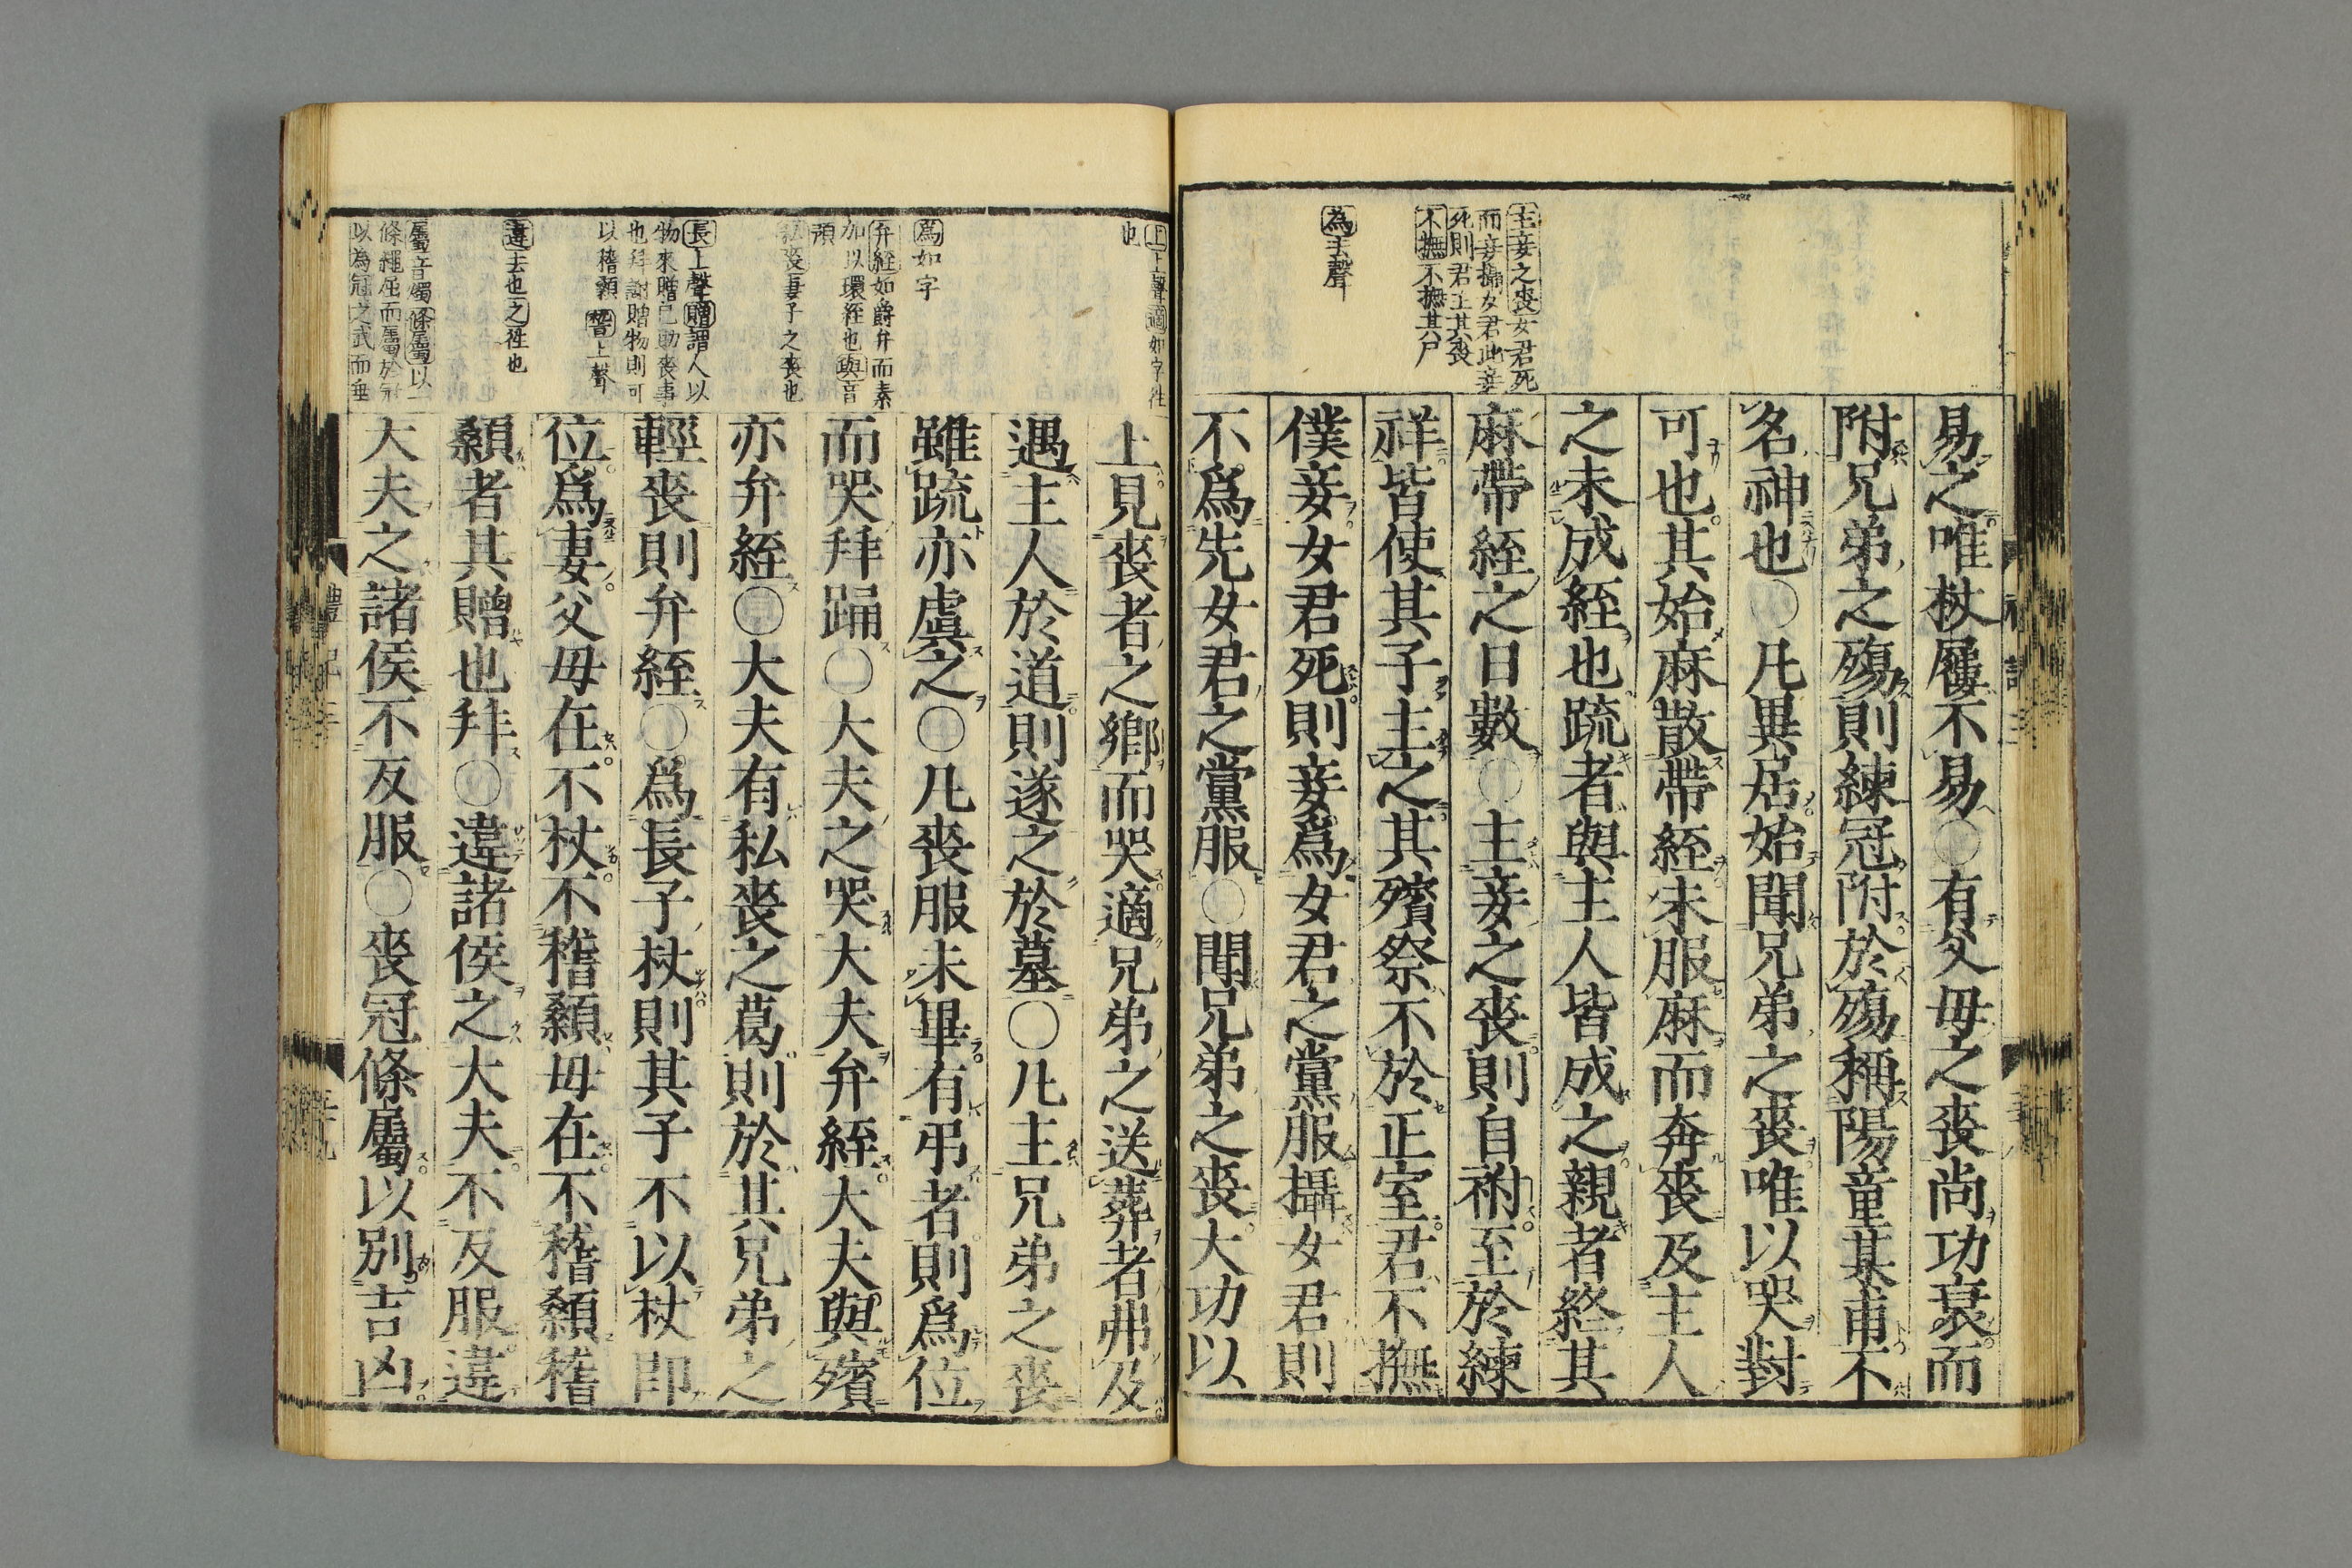 主妾之喪女君死
而妾攝女君此妾
死則君主其喪
不撫不撫其尸
為去聲
易之唯杖屨不易○有父母之喪尚功衰而
附兄弟之殤則練冠附於殤稱陽童某甫不
名神也○凡異居始聞兄弟之喪唯以哭對
可也其始麻散帶絰未服麻而奔喪及主人
之未成絰也疏者與主人皆成之親者終其
麻帶絰之日數○主妾之喪則自祔至於練
祥皆使其子主之其殯祭不於正室君不撫
僕妾女君死則妾爲女君之黨服攝女君則
不爲先女君之黨服○聞兄弟之喪大功以
上上聲適如字往
也
爲如字
弁絰如爵弁而素
加以環絰也與音
預
私喪妻子之喪也
長上聲贈謂人以
物來贈己助喪事
也拜謝贈物則可
以稽顙稽上聲
違去也之往也
屬音燭條屬以一
條繩屈而屬於冠
以為冠之武而垂
上見喪者之鄉而哭適兄弟之送葬者弗及
遇主人於道則遂之於墓○凡主兄弟之喪
雖疏亦虞之○凡喪服未畢有弔者則爲位
而哭拜踊○大夫之哭大夫弁絰大夫與殯
亦弁絰○大夫有私喪之葛則於其兄弟之
輕喪則弁絰○爲長子杖則其子不以杖即
位爲妻父母在不杖不稽顙母在不稽顙稽
顙者其贈也拜○違諸侯之大夫不反服違
大夫之諸侯不反服○喪冠條屬以別吉凶
禮記三